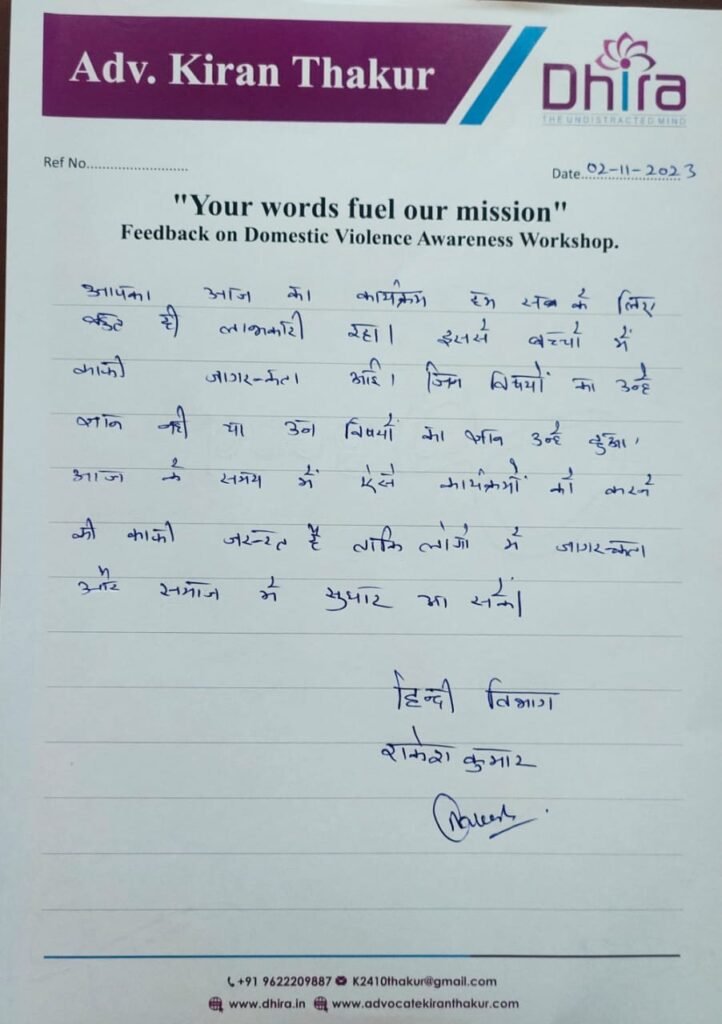 Adv. Kiran Thakur
Dhira
THE UNDISTRACTED MIND
Ref No............................
Date..02-11-2023
"Your words fuel our mission"
Feedback on Domestic Violence Awareness Workshop.
आपका आज का कार्यक्रम हम सब के लिए
बहुत ही लाभकारी रहा। इससे बच्चों में
काफी जागरूकता आई। जिन विषयों का उन्हें
ज्ञान नहीं था उन विषयों का ज्ञान उन्हें हुआ।
आज के समय में ऐसे कार्यक्रमों को करने
की काफी जरूरत है ताकि लोगों में जागरूकता
और समाज में सुधार आ सके।
हिन्दी विभाग
राकेश कुमार
Rakesh
+91 9622209887 K2410thakur@gmail.com
www.dhira.in www.advocatekiranthakur.com